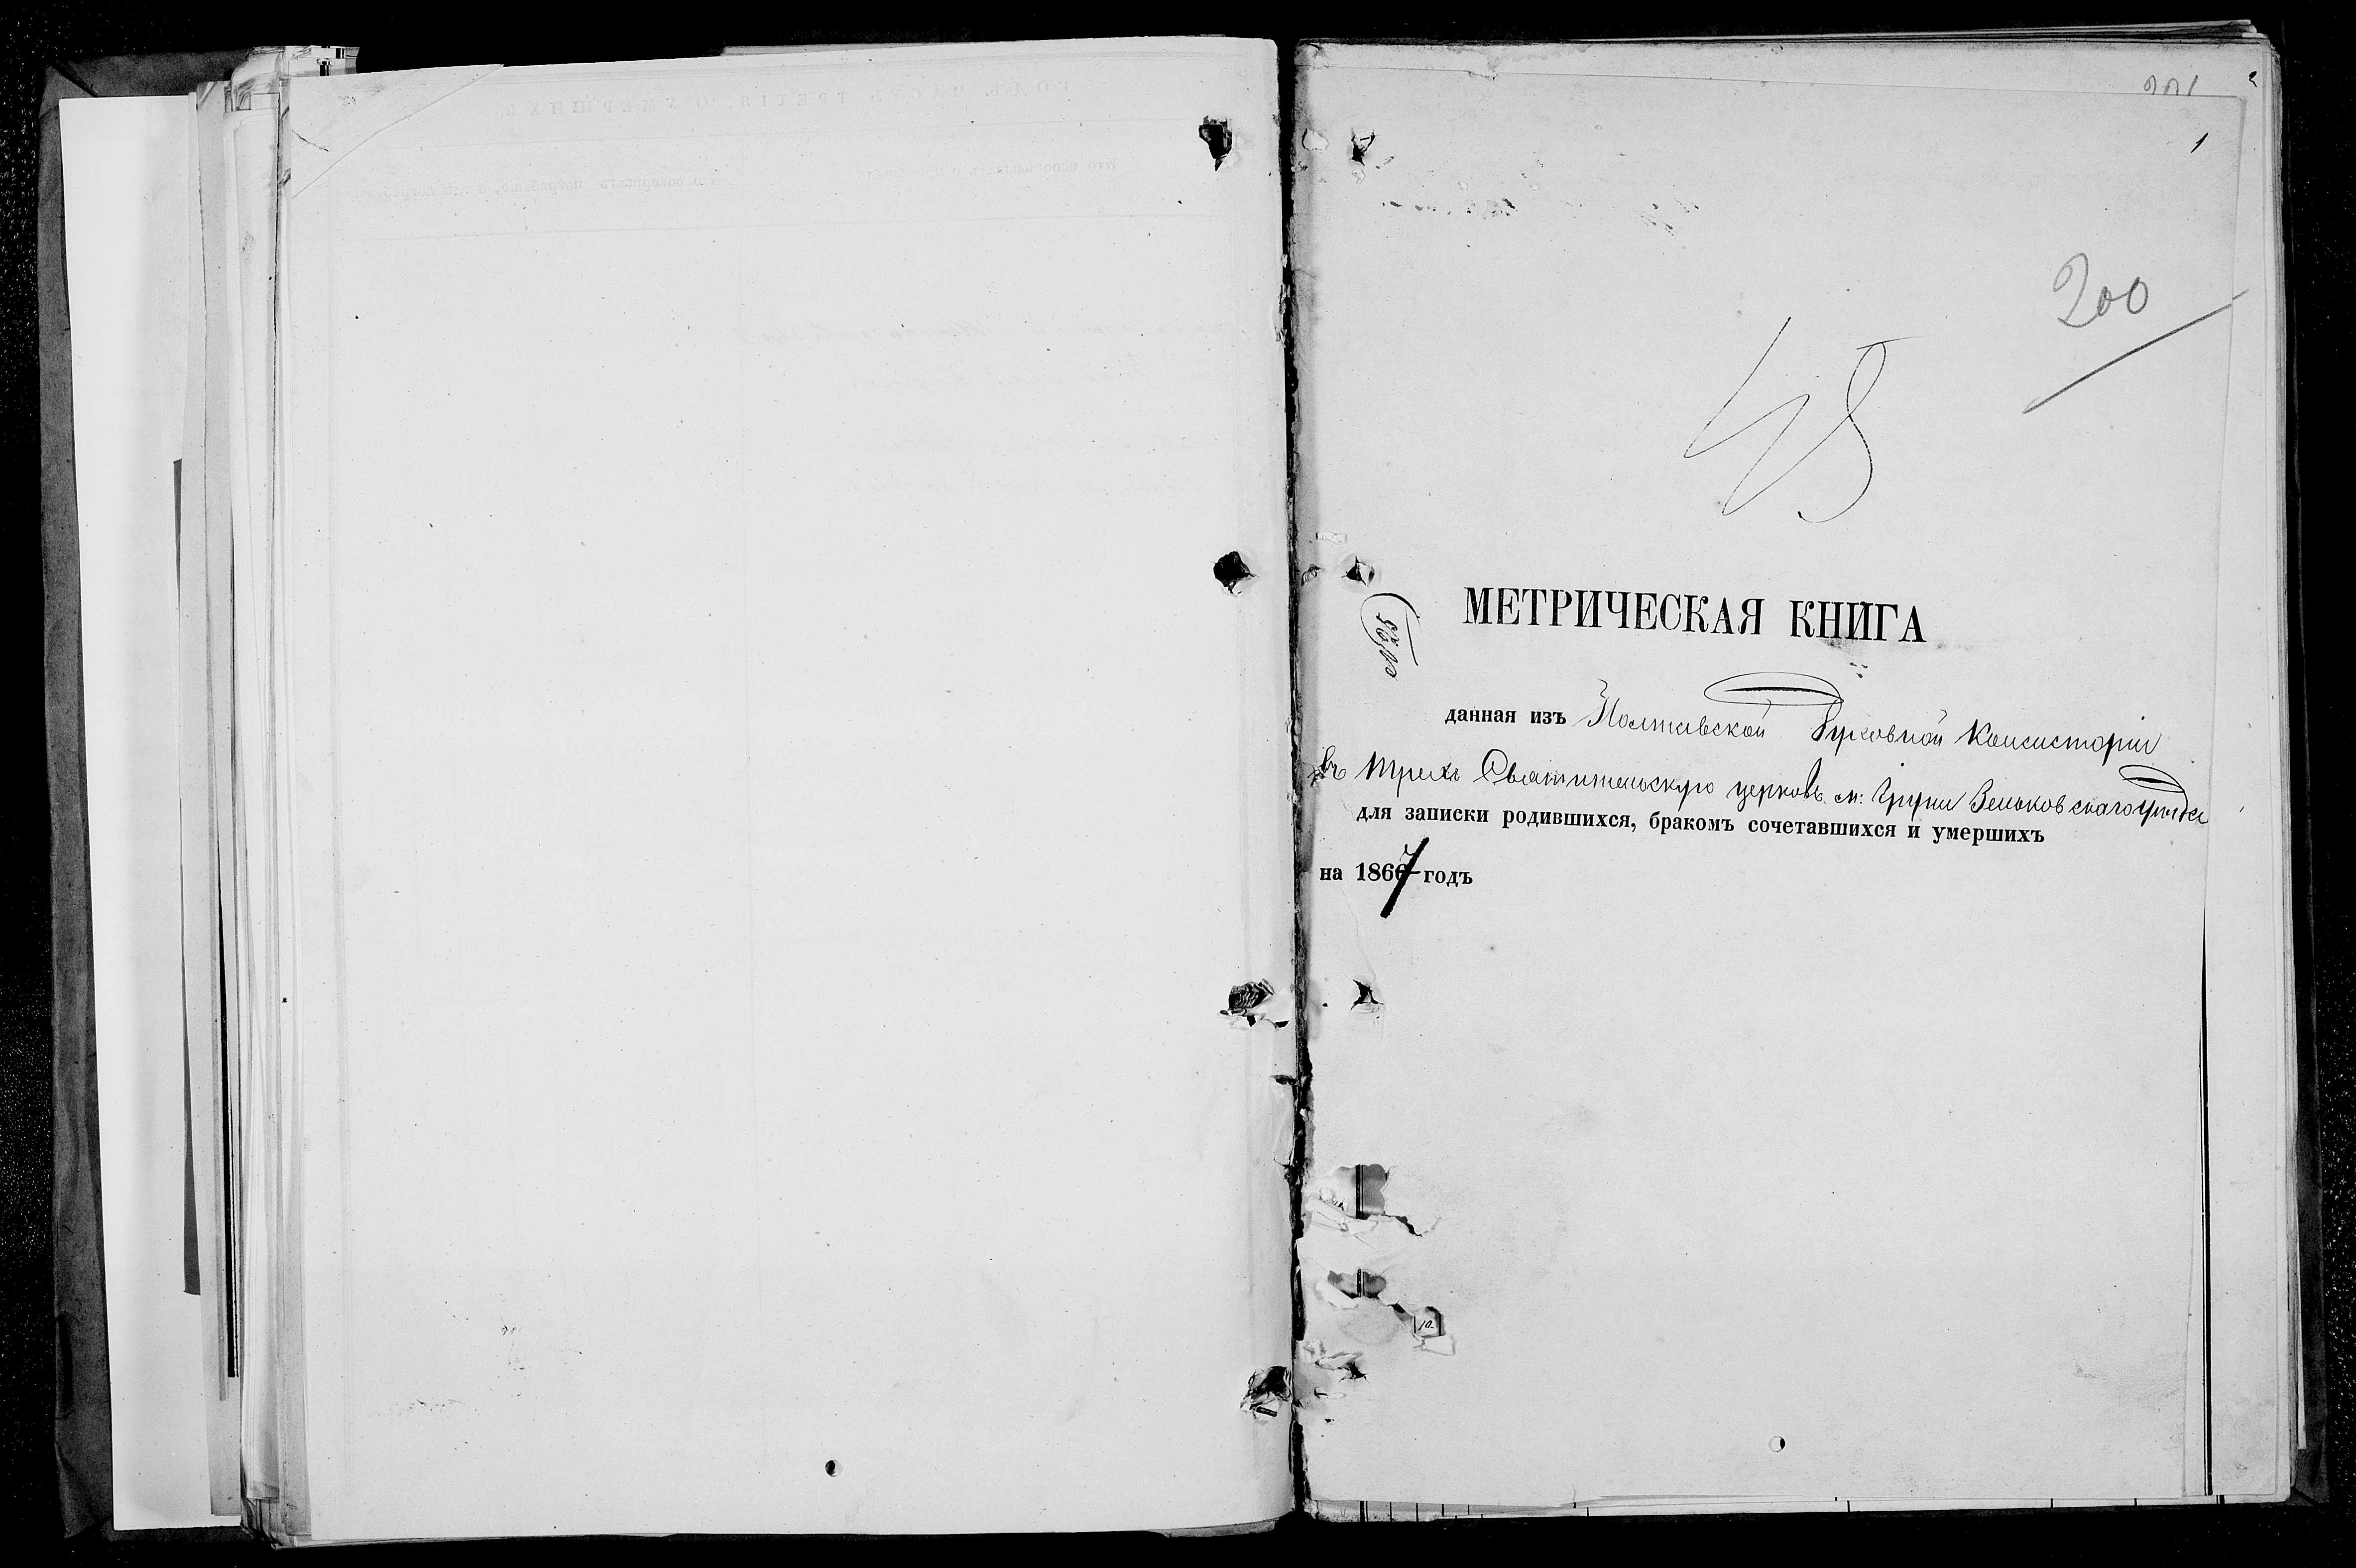 1
200
45
МЕТРИЧЕСКАЯ КНИГА
данная изъ Полтавской Духовной Консисторіи
въ Трехъ Святительскую церковь м: Груни Зеньковскаго уѣзда
для записки родившихся, бракомъ сочетавшихся и умершихъ
на 1867 годъ